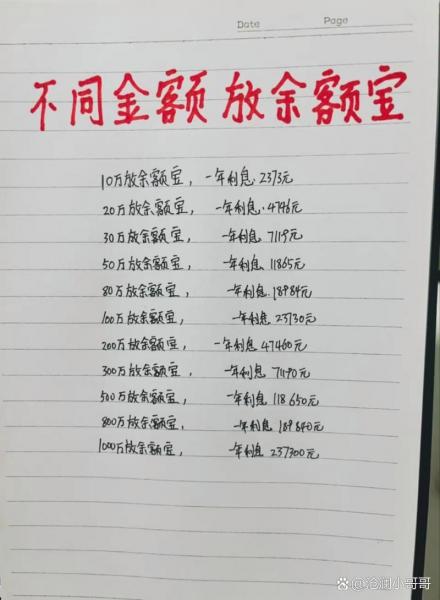 Date Page
不同金额放余额宝
10万放余额宝，一年利息.2373元
20万放余额宝，一年利息.4746元
30万放余额宝，一年利息 7119元
50万放余额宝，一年利息 11865元
80万放余额宝，一年利息.18984元
100万放余额宝，一年利息.23730元
200万放余额宝，一年利息 47460元
300万放余额宝，一年利息 71190元
500万放余额宝，一年利息 118650元
800万放余额宝，一年利息 189840元
1000万放余额宝，一年利息 237300元